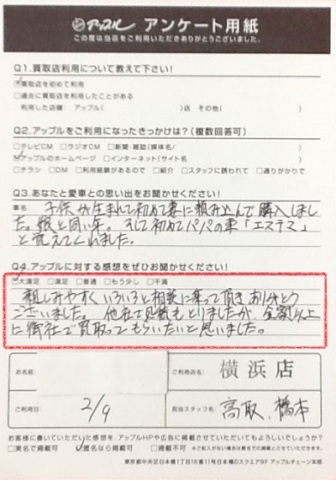 アップル アンケート用紙
この度は当店をご利用いただきありがとうございました。
Q1.買取店利用について教えて下さい!
買取店を初めて利用
過去に買取店を利用したことがある
利用した店舗: アップル( )店 その他( )
Q2.アップルをご利用になったきっかけは?(複数回答可)
テレビCM ラジオCM 新聞・雑誌(媒体名/ )
アップルのホームページ インターネット(サイト名 )
チラシ DM 利用経験があるので 紹介 スタッフに誘われて 通りがかりで
Q3.あなたと愛車との思い出をお聞かせください!
車名: 子供が生まれて初めて妻に頼み込んで購入しまし
た。娘と同い年。そして初めてパパの車「エステマ」
と覚えてくれました。
Q4.アップルに対する感想をぜひお聞かせください!
大満足 満足 普通 もう少し 不満
親しみやすくいろいろと相談に乗って頂きありがとう
ございました。他社で見積もとりましたが、金額以上
に御社で買取ってもらいたいと思いました。
お名前
ご利用店名: 横浜店
ご利用日 2/9
担当スタッフ名: 高取、橋本
お客様に書いていただいた感想を、アップルHPや広告に掲載させていただいてもよろしいでしょうか?
実名で掲載可 匿名なら掲載可 掲載不可
東京都中央区日本橋1丁目18番11号日本橋ロスクエアBF アップルチェーン本部